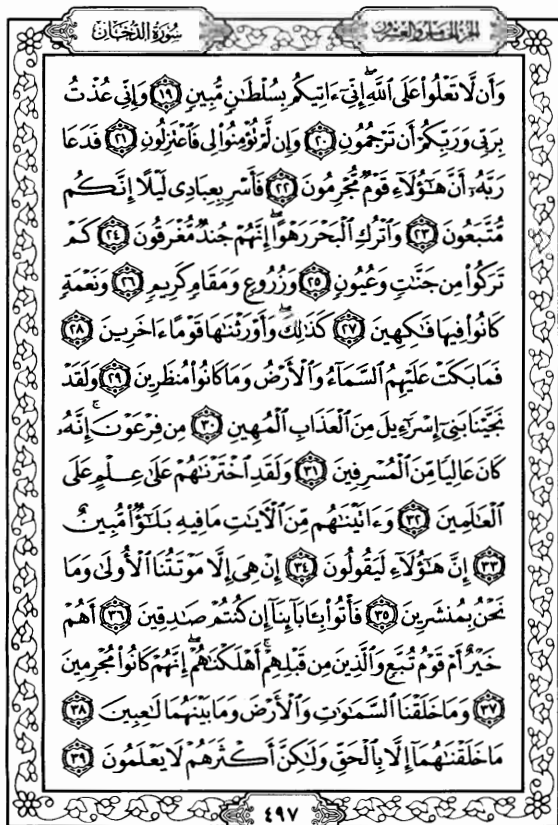 الجزء الخامس والعشرون
سورة الدخان
وَأَن لَّا تَعْلُوا۟ عَلَى ٱللَّهِ ۖ إِنِّىٓ ءَاتِيكُم بِسُلْطَـٰنٍ مُّبِينٍ ١٩ وَإِنِّى عُذْتُ
بِرَبِّى وَرَبِّكُمْ أَن تَرْجُمُونِ ٢٠ وَإِن لَّمْ تُؤْمِنُوا۟ لِى فَٱعْتَزِلُونِ ٢١ فَدَعَا
رَبَّهُۥٓ أَنَّ هَـٰٓؤُلَآءِ قَوْمٌ مُّجْرِمُونَ ٢٢ فَأَسْرِ بِعِبَادِى لَيْلًا إِنَّكُم
مُّتَّبَعُونَ ٢٣ وَٱتْرُكِ ٱلْبَحْرَ رَهْوًا ۖ إِنَّهُمْ جُندٌ مُّغْرَقُونَ ٢٤ كَمْ
تَرَكُوا۟ مِن جَنَّـٰتٍ وَعُيُونٍ ٢٥ وَزُرُوعٍ وَمَقَامٍ كَرِيمٍ ٢٦ وَنَعْمَةٍ
كَانُوا۟ فِيهَا فَـٰكِهِينَ ٢٧ كَذَٰلِكَ ۖ وَأَوْرَثْنَـٰهَا قَوْمًا ءَاخَرِينَ ٢٨
فَمَا بَكَتْ عَلَيْهِمُ ٱلسَّمَآءُ وَٱلْأَرْضُ وَمَا كَانُوا۟ مُنظَرِينَ ٢٩ وَلَقَدْ
نَجَّيْنَا بَنِىٓ إِسْرَٰٓءِيلَ مِنَ ٱلْعَذَابِ ٱلْمُهِينِ ٣٠ مِن فِرْعَوْنَ ۚ إِنَّهُۥ
كَانَ عَالِيًا مِّنَ ٱلْمُسْرِفِينَ ٣١ وَلَقَدِ ٱخْتَرْنَـٰهُمْ عَلَىٰ عِلْمٍ عَلَى
ٱلْعَـٰلَمِينَ ٣٢ وَءَاتَيْنَـٰهُم مِّنَ ٱلْـَٔايَـٰتِ مَا فِيهِ بَلَـٰٓؤٌا۟ مُّبِينٌ
٣٣ إِنَّ هَـٰٓؤُلَآءِ لَيَقُولُونَ ٣٤ إِنْ هِىَ إِلَّا مَوْتَتُنَا ٱلْأُولَىٰ وَمَا
نَحْنُ بِمُنشَرِينَ ٣٥ فَأْتُوا۟ بِـَٔابَآئِنَآ إِن كُنتُمْ صَـٰدِقِينَ ٣٦ أَهُمْ
خَيْرٌ أَمْ قَوْمُ تُبَّعٍ وَٱلَّذِينَ مِن قَبْلِهِمْ ۚ أَهْلَكْنَـٰهُمْ ۖ إِنَّهُمْ كَانُوا۟ مُجْرِمِينَ
٣٧ وَمَا خَلَقْنَا ٱلسَّمَـٰوَٰتِ وَٱلْأَرْضَ وَمَا بَيْنَهُمَا لَـٰعِبِينَ ٣٨
مَا خَلَقْنَـٰهُمَآ إِلَّا بِٱلْحَقِّ وَلَـٰكِنَّ أَكْثَرَهُمْ لَا يَعْلَمُونَ ٣٩
٤٩٧